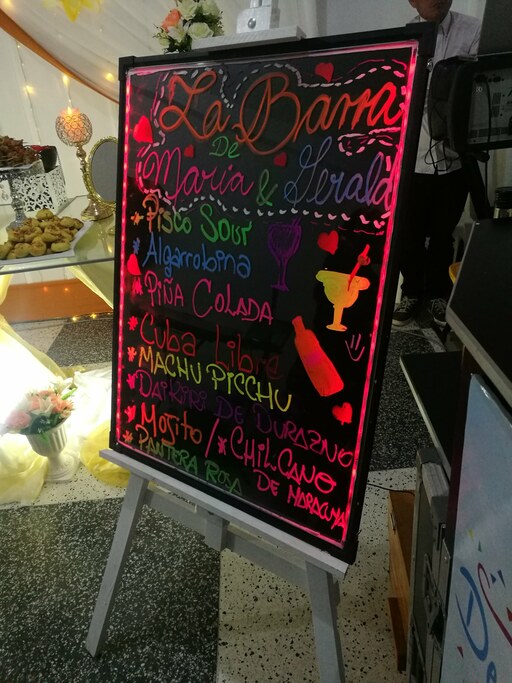 La Barra
De
María & Gerald
* Pisco Sour
* Algarrobina
* Piña Colada
* Cuba Libre
* MACHU PICCHU
* DAIKIRI DE DURAZNO
* Mojito / * CHILCANO
DE MARACUYA
* PANTORA ROSA